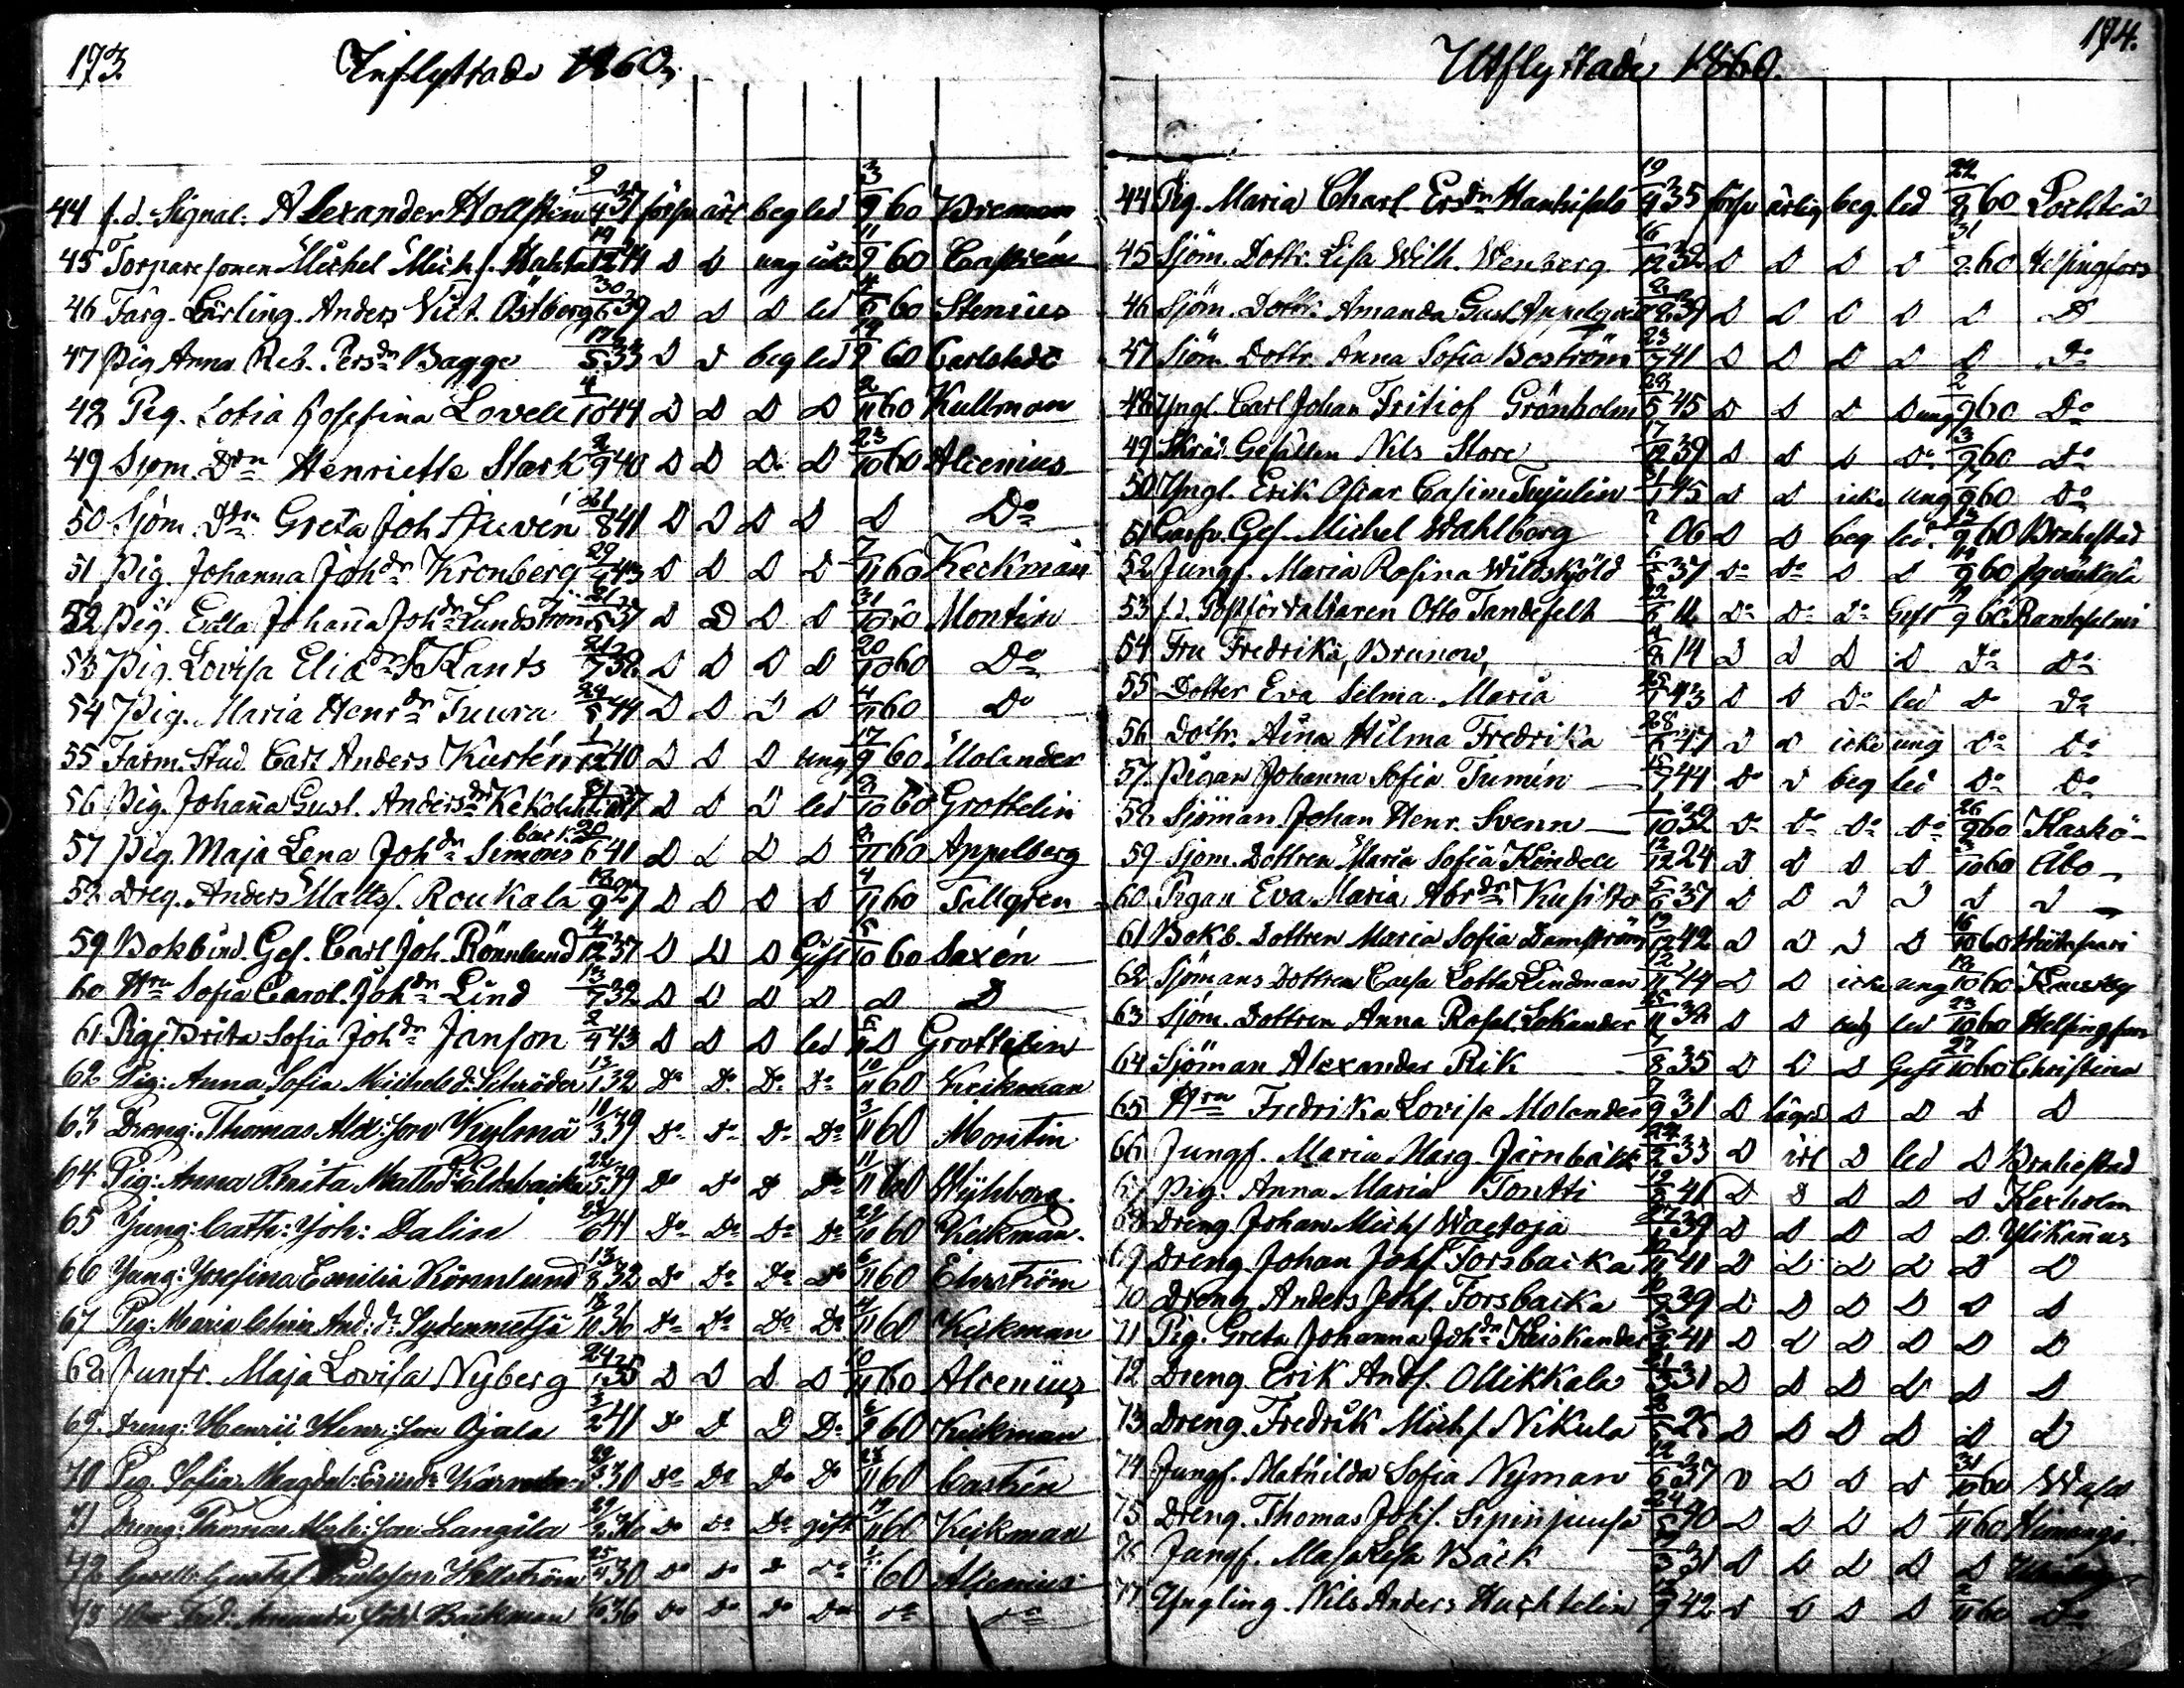 173.
Inflyttade 1860.
44 f.d. Signal. Alexander Hollstein 9/4 37 förs. ärl beg led 3/9 60 Bremon
45 Torparesonen Michel Mich.s. 19/12 44 D D ung icke 11/9 60 Castrén
46 Färg. Lärling Anders Vict. Östberg 30/6 39 D D D led 4/5 60 Stenius
47 Pig Anna Reb. Persdr Bagge 17/5 33 D D beg led 19/9 60 Carlstedt
48 Pig. Sofia Josefina Lovell 4/10 44 D D D D 2/11 60 Kullman
49 Sjöm. Dtrn Henriette Stark 2/9 40 D D D D 23/10 60 Alcenius
50 Sjöm. Dtrn Greta Joh 8 41 D D D D D Do
51 Pig. Johanna Johdr Kronberg 29/4 43 D D D D 7/11 60 Keckman
52 Pig. Edla Johanna Johdr Lundström 21/5 37 D D D D 31/10 60 Montin
53 Pig. Lovisa Eliædr Klants 21/7 38 D D D D 20/10 60 Do
54 Pig. Maria Henrdr Tuura 29/5 44 D D D D 4/11 60 Do
55 Farm. Stud. Carl Anders Kurtén 1/12 40 D D D ung 17/9 60 Molander
56 Pig. Johanna Gust. Andersdr D D D led 2/10 60 Grottelin
57 Pig. Maja Lena Johdr Simons back 20/6 41 D D D D /11 60 Appelberg
58 Dreg. Anders Matts. Roukala 18/9 27 D D D D 4/11 60 Tallgren
59 Bokbind. Ges. Carl Joh. Rönnlund 4/12 37 D D D Gift 5/10 60 Saxén
60 Hru Sofia Carol. Johdr Lind 13/7 32 D D D D D D
61 Pig. Brita Sofia Johdr Janson 2/4 43 D D D led 6/11 D Grottelin
62 Pig: Anna Sofia Michelsdr Schröder 13/1 32 Do Do Do Do 10/11 60 Keikman
63 Dreng: Thomas Alex:son Kylmä 10/3 39 Do Do Do Do 3/11 60 Montin
64 Pig: Anna Brita Mattsdr 5 39 Do Do D Do 11/11 60 Nyberg
65 Jung: Cath: Joh: Dalin 6 41 Do Do Do Do 29/10 60 Keikman
66 Jung: Josefina Emilia Rönnlund 13/8 32 Do Do Do Do 6/11 60 Ehrström
67 Pig: Maria And:dr 18/10 36 Do Do Do Do 4/11 60 Keikman
68 Junfr. Maja Lovisa Nyberg 24/1 35 D D D D 10/11 60 Alcenius
69. Dreng: Henrik Henr:son Ojala 3/2 41 Do D D Do 60 Keikman
70 Pig. Sofia Magdal: 30 Do Do Do D 60 Castrén
71 Dreng: Thomas son Långåla 29/2 36 Do Do Do gift 19/11 60 Keikman
72 Gesell Gustaf Hellström 25 30 Do Do D Do 60 Alcenius
73 Amanda Bäckman 36 Do Do Do Do Do Do
174.
Utflyttade 1860.
44 Pig. Maria Charl. Ersdr 19/9 35 förs. ärlig beg. led 22/2 60 Lochteå
45 Sjöm. Dottr. Lisa Wilh. Wenberg 16/12 32 D D D D 31/2 60 Helsingfors
46 Sjöm. Dottr. Amanda Gust. Appelqvist 39 D D D D D D
47 Sjöm. Dottr. Anna Sofia Boström 23/7 41 D D D D D Do
48 Yngl. Carl Johan Fritiof Grönholm 23/5 45 D D D D ung 2/9 60 Do
49 Skräd. Gesällen Nils Store 17/12 39 D D D Do 3/9 60 Do
50 Yngl. Erik Oscar Casim 1 45 D D icke ung 9 60 Do
51 Garfv. Ges. Michel Wahlberg ? 06 D D beg led. 9 60 Brahestad
52 Jungf. Maria Rosina Wildskjöld 37 Do Do D D 9 60 Jyväskylä
53 f.d. Postförvaltaren Otto Tandefelt 22/6 11 Do Do Do Gift 11/9 60 Rantasalmi
54 Fru Fredrika, Brunow, 14 D D D D Do Do
55 Dotter Eva Selma Maria 25 43 D D Do led D Do
56 Dottr. Aina Hilma Fredrika 28/6 47 D D icke ung Do Do
57. Pigan Johanna Sofia Tumén 15/7 44 Do D beg led Do Do
58 Sjöman Johan Henr. Svenn 1/10 32 Do Do Do Do 26/9 60 Kaskö
59 Sjöm. Dottren Maria Sofia Kindell 12/12 24 D D D D 10 60 Åbo
60 Pigan Eva Maria Abrdr Kusisto 5/6 37 D D D D D D
61 Bokb. Dottren Maria Sofia Damström 19/12 42 D D D D 16/10 60
62 Sjömans Dottren Caisa Lotta Lindman 12/11 44 D D icke ung 19/10 60
63 Sjöm. Dottren Anna Rosal. Lekander 25/11 32 D D beg led 23/10 60 Helsingfors
64 Sjöman Alexander Rik 7/8 35 D D D Gift 27/10 60 Christina
65 Hru Fredrika Lovisa Molander 7/9 31 D läged D D D D
66 Jungf. Maria Marg. Järnbäck 24/2 33 D ärl D led D Brahestad
67 Pig. Anna Maria Tontti 41 D D D D D Kexholm
68 Dreng Johan Mich.s Wartoja 39 D D D D D Ylikannus
69 Dreng Johan Johs. Forsbacka 11 41 D D D D D D
70 Dreng Anders Johs. Forsbacka 39 D D D D D D
71 Pig. Greta Johanna Johdr Keiskander 41 D D D D D D
72 Dreng. Erik Ands. Ollikkala 31 D D D D D D
73 Dreng. Fredrik Mich.s Nikula 26 D D D D D D
74 Jungf. Mathilda Sofia Nyman 12/6 37 D D D D 31/10 60 Wasa
75 Dreng. Thomas Johs. 40 D D D D 1/11 60 Himango.
76 Jungf. Maja Lisa Bäck 3 31 D D D D D
77 Yngling. Nils Anders Huchtelin 9 42 D D D D 2/11 60 Do